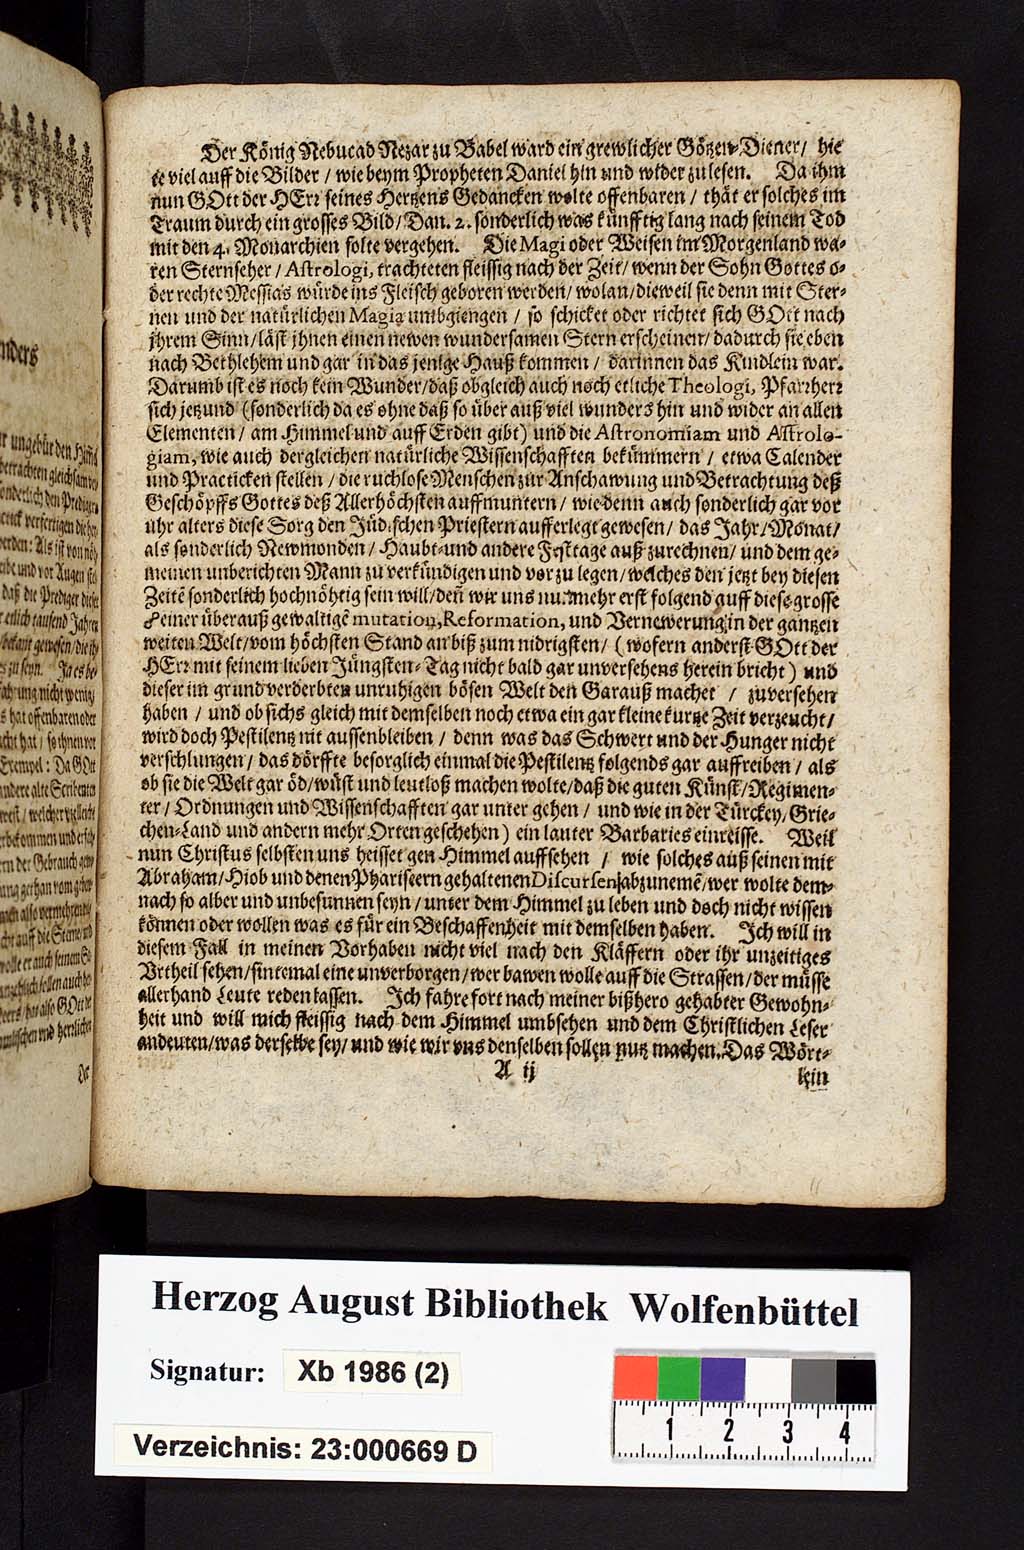 Der König Nebucad Nezar zu Babel ward ein grewlicher Götzen-Diener/ hie
te viel auff die Bilder / wie beym Propheten Daniel hin und wider zu lesen. Da ihm
nun GOtt der HErr seines Hertzens Gedancken wolte offenbaren / thät er solches im
Traum durch ein grosses Bild/ Dan. 2. sonderlich was künfftig lang nach seinem Tod
mit den 4. Monarchien solte vergehen. Die Magi oder Weisen im Morgenland wa-
ren Sternseher / Astrologi, trachteten fleissig nach der Zeit/ wenn der Sohn Gottes o-
der rechte Messias würde ins Fleisch geboren werden/ wolan/ dieweil sie denn mit Ster-
nen und der natürlichen Magia umbgiengen / so schicket oder richtet sich GOtt nach
jhrem Sinn/ läst jhnen einen newen wundersamen Stern erscheinen/ dadurch sie eben
nach Bethlehem und gar in das jenige Hauß kommen / darinnen das Kindlein war.
Darumb ist es noch kein Wunder/ daß obgleich auch noch etliche Theologi, Pfarrherr
sich jetzund (sonderlich da es ohne daß so über auß viel wunders hin und wider an allen
Elementen / am Himmel und auff Erden gibt) und die Astronomiam und Astrolo-
giam, wie auch dergleichen natürliche Wissenschafften bekümmern / etwa Calender
und Practicken stellen / die ruchlose Menschen zur Anschawung und Betrachtung deß
Geschöpffs Gottes deß Allerhöchsten auffmuntern / wie denn auch sonderlich gar vor
uhr alters diese Sorg den Jüdischen Priestern aufferlegt gewesen / das Jahr/ Monat/
als sonderlich Newmonden / Haubt- und andere Festtage auß zurechnen/ und dem ge-
meinen unberichten Mann zu verkündigen und vor zu legen/ welches den jetzt bey diesen
Zeitē sonderlich hochnöhtig sein will/ deñ wir uns nunmehr erst folgend auff diese grosse
Feiner überauß gewaltigē mutation, Reformation, und Vernewerung in der gantzen
weiten Welt/ vom höchsten Stand an biß zum nidrigsten/ (wofern anderst GOtt der
HErr mit seinem lieben Jüngsten-Tag nicht bald gar unversehens herein bricht) und
dieser im grund verderbten unruhigen bösen Welt den Garauß machet / zuversehen
haben / und ob sichs gleich mit demselben noch etwa ein gar kleine kurtze Zeit verzeucht/
wird doch Pestilentz nit aussenbleiben / denn was das Schwert und der Hunger nicht
verschlungen/ das dörffte besorglich einmal die Pestilentz folgends gar auffreiben / als
ob sie die Welt gar öd/ wüst und leutloß machen wolte/ daß die guten Künst/ Regimen-
ter/ Ordnungen und Wissenschafften gar unter gehen/ und wie in der Türckey/ Grie-
chen-Land und andern mehr Orten geschehen) ein lauter Barbaries einreisse. Weil
nun Christus selbsten uns heisset gen Himmel auffsehen / wie solches auß seinen mit
Abraham/ Hiob und denen Phariseern gehaltenen Discursen abzunemē/ wer wolte dem-
nach so alber und unbesunnen seyn/ unter dem Himmel zu leben und doch nicht wissen
können oder wollen was es für ein Beschaffenheit mit demselben haben. Ich will in
diesem Fall in meinen Vorhaben nicht viel nach den Kläffern oder ihr unzeitiges
Urtheil sehen/ sintemal eine unverborgen/ wer bawen wolle auff die Strassen/ der müsse
allerhand Leute reden lassen. Ich fahre fort nach meiner bißhero gehabter Gewohn-
heit und will mich fleissig nach dem Himmel umbsehen und dem Christlichen Leser
andeuten/ was derselbe sey/ und wie wir uns denselben sollen nutz machen. Das Wört-
A ij
lein
Herzog August Bibliothek Wolfenbüttel
Signatur: Xb 1986 (2)
Verzeichnis: 23:000669 D
1 2 3 4